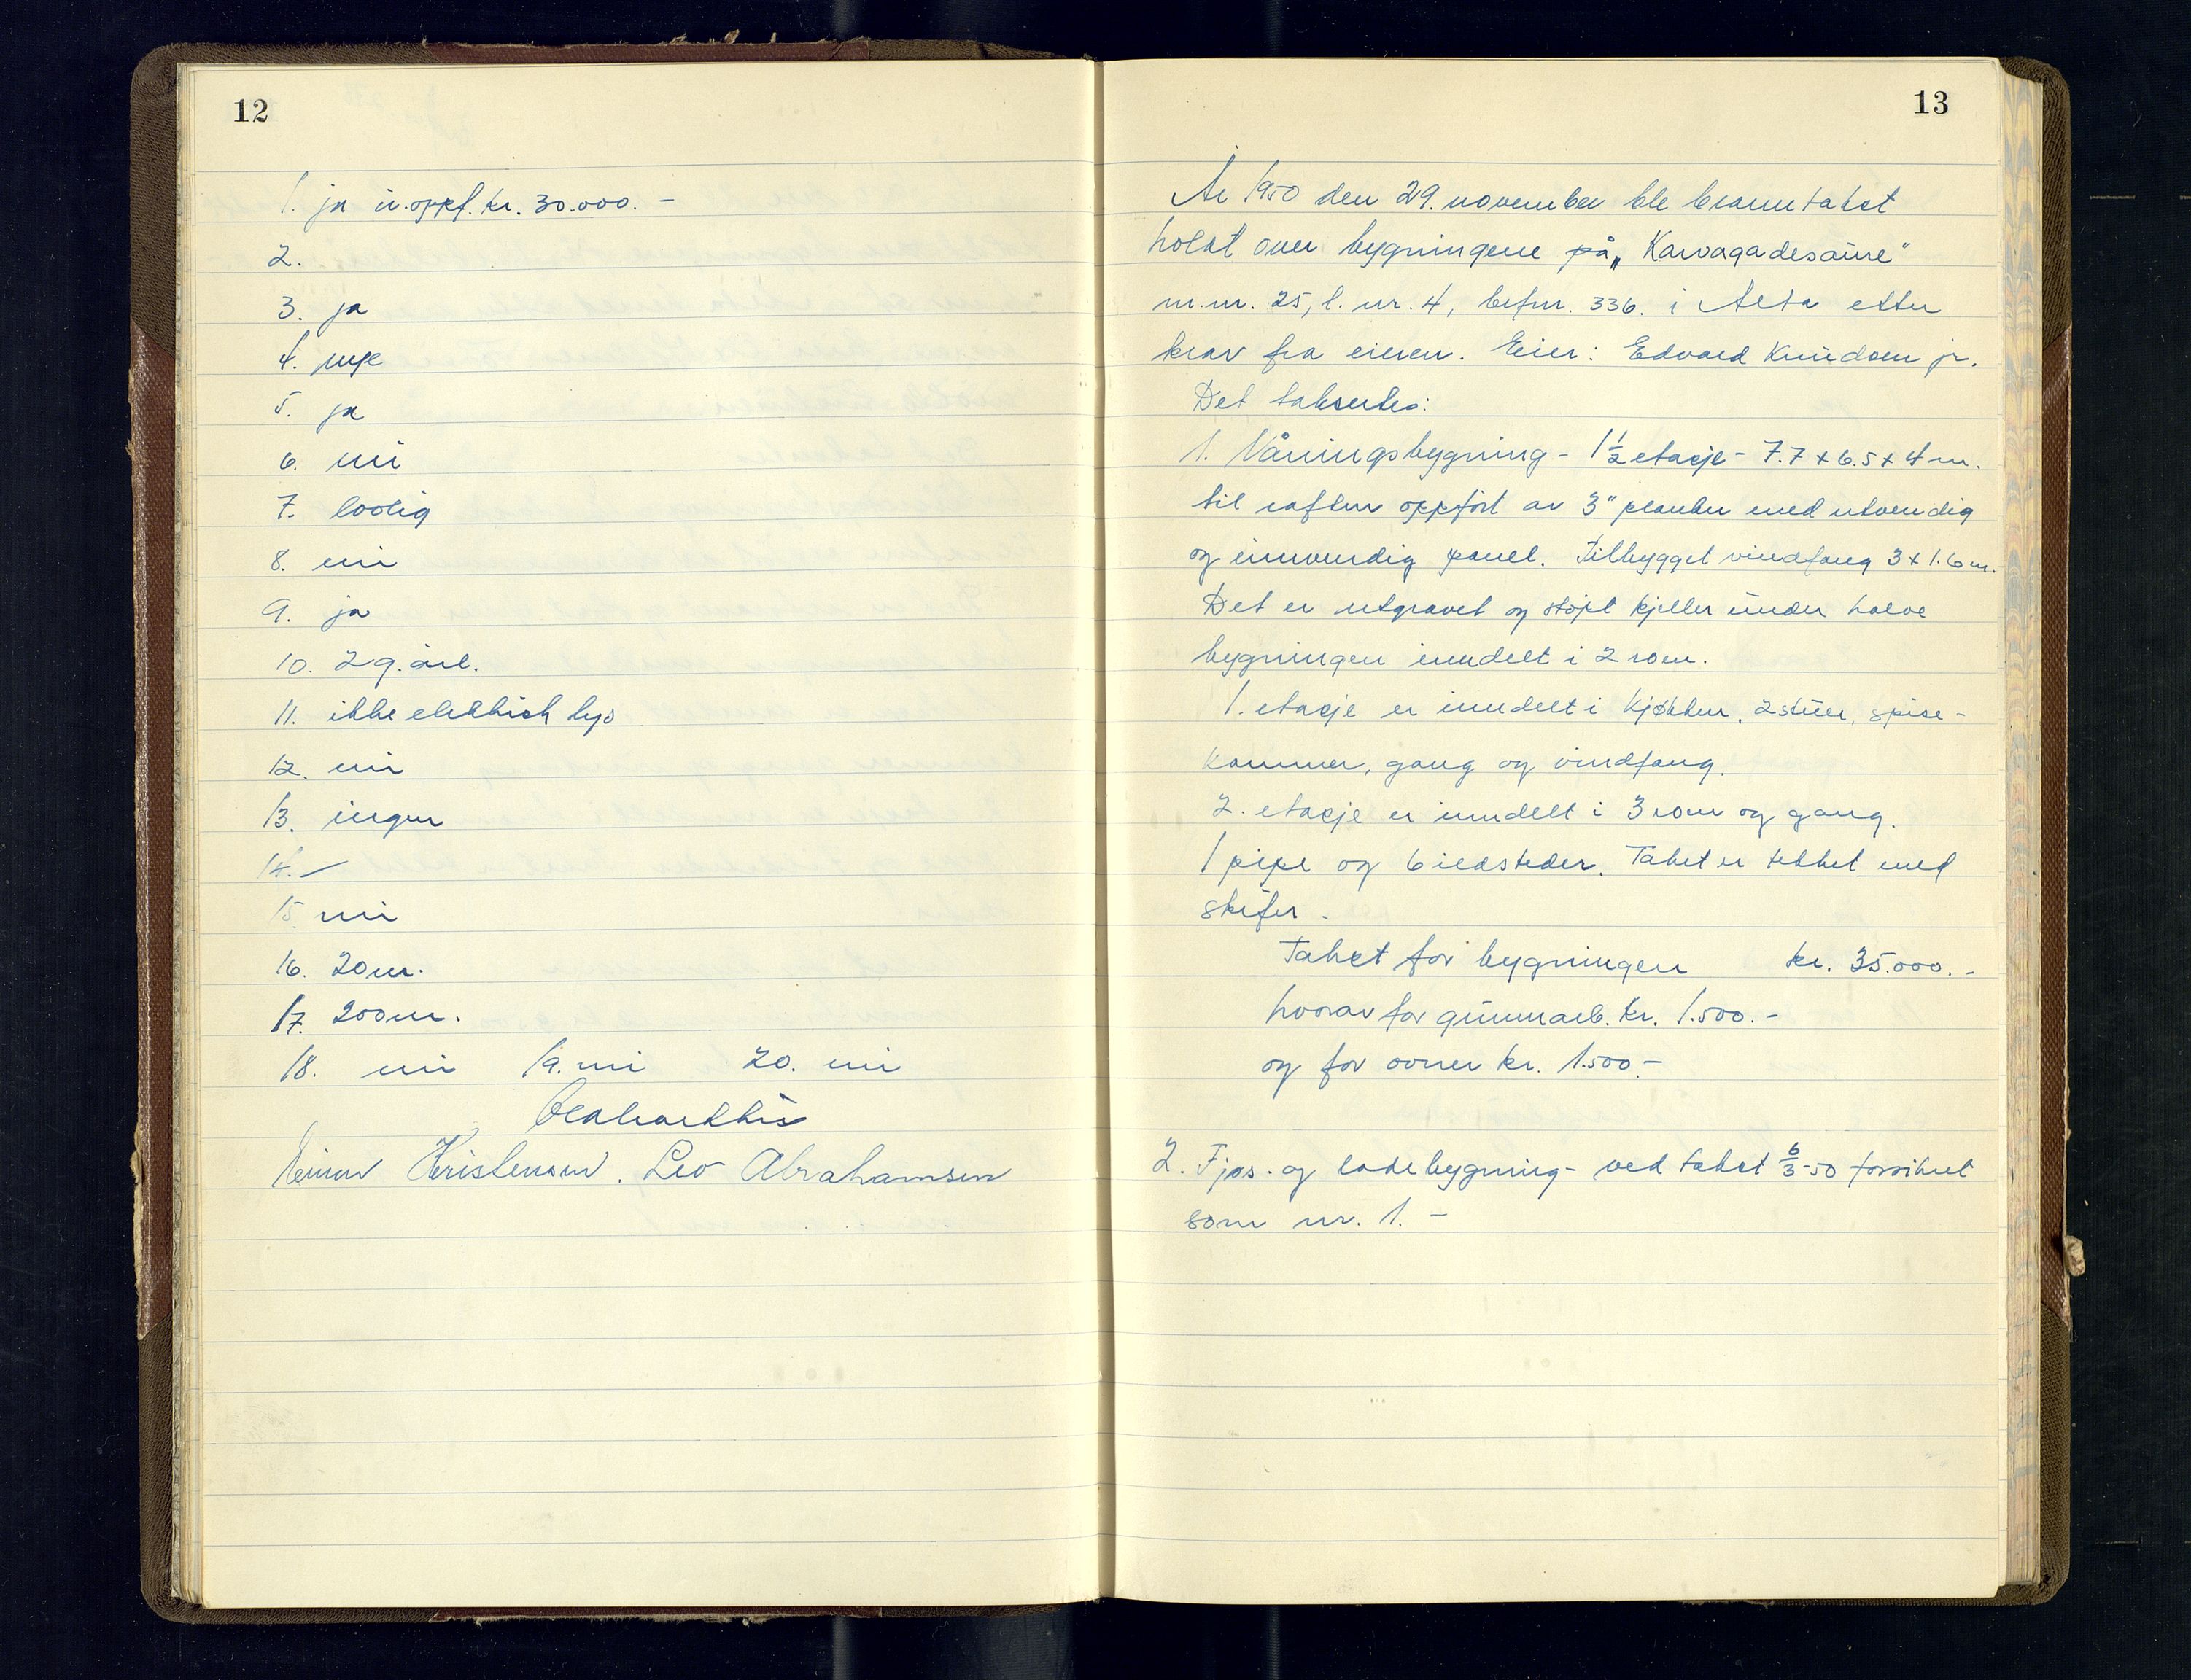 12
1. ja u.oppf. kr. 30.000. -
2.
3. ja
4. mye
5. ja
6. nei
7. bolig
8. nei
9. ja
10. 2 g. årl.
11. ikke elektrisk lys
12. nei
13. ingen
14. -
15. nei
16. 20 m.
17. 200 m.
18. nei 19. nei 20. nei
Einar Kristensen. Leo Abrahamsen
13
År 1950 den 29. november ble branntakst
holdt over bygningene på „Karvagadesaure"
m.nr. 25, l. nr. 4, brfnr. 336. i Alta etter
krav fra eieren. Eier: Edvard Knudsen jr.
Det taksertes:
1. Våningsbygning - 1½ etasje - 7.7 x 6.5 x 4 m.
til raften oppført av 3" planker med utvendig
og innvendig panel. Tilbygget vindfang 3 x 1.6 m.
Det er utgravet og støpt kjeller under halve
bygningen inndelt i 2 rom.
1. etasje er inndelt i kjøkken, 2 stuer, spise-
kammer, gang og vindfang.
2. etasje er inndelt i 3 rom og gang.
1 pipe og 6 ildsteder. Taket er tekket med
skifer.
Takst for bygningen kr. 35.000. -
hvorav for grunnarb. kr. 1.500. -
og for ovner kr. 1.500 -
2. Fjøs- og ladebygning - ved takst 6/3-50 forsikret
som nr. 1. -